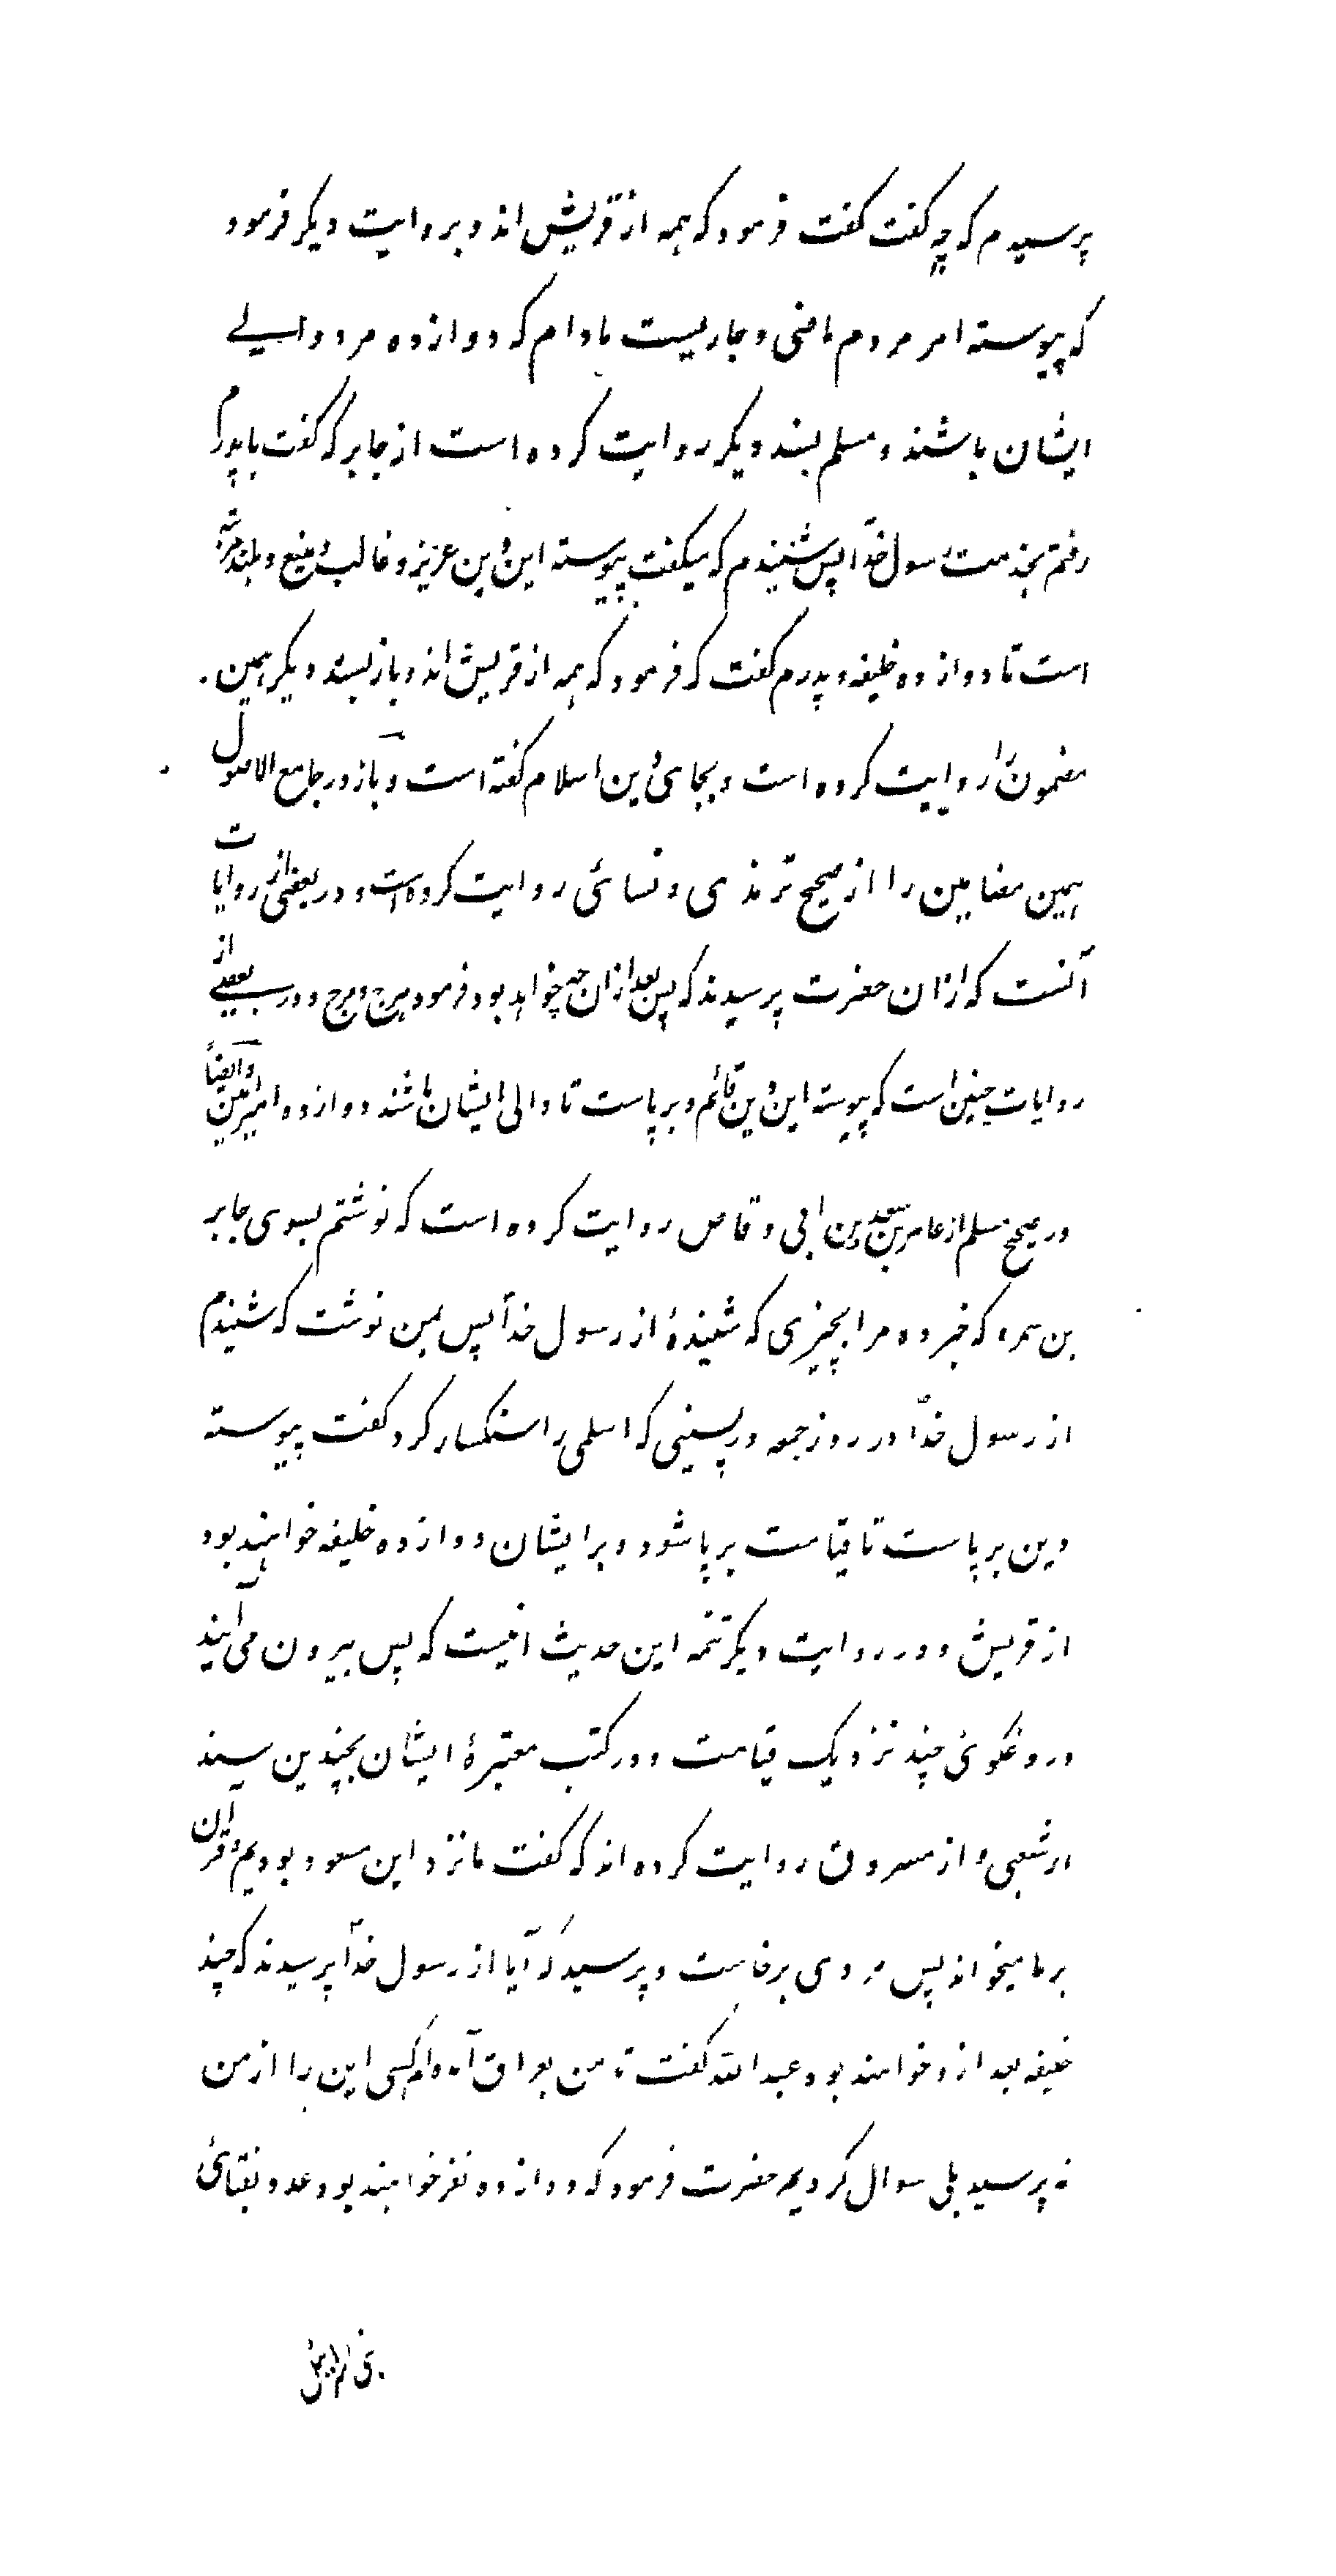 پرسیدم که چه گفت گفت فرمود که همه از قریش اند و بروایت دیگر فرمود
که پیوسته امر مردم ماضی و جاریست مادام که دوازده مرد والی
ایشان باشند و مسلم بسند دیگر روایت کرده است از جابر که گفت با پدرم
رفتم بخدمت رسول خدا پس شنیدم که میگفت پیوسته این دین عزیز و غالب و منیع و بلند مرتبه
است تا دوازده خلیفه و پدرم گفت که فرمود که همه از قریش اند و باز بسند دیگر همین
مضمون را روایت کرده است و بجای دین اسلام گفته است و باز در جامع الاصول
همین مضامین را از صحیح ترمذی و نسائی روایت کرده است و در بعضی از روایات
آنست که ازان حضرت پرسیدند که پس بعد ازان چه خواهد بود فرمود هرج و مرج و در بعضی از
روایات چنین است که پیوسته این دین قائم و برپاست تا والی ایشان باشند دوازده امیر و ایضاً
در صحیح مسلم از عامر بن سعد بن ابی وقاص روایت کرده است که نوشتم بسوی جابر
بن سمره که خبر ده مرا بچیزی که شنیدهٔ از رسول خدا پس بمن نوشت که شنیدم
از رسول خدا در روز جمعه در پسینی که اسلمی را سنگسار کرد گفت پیوسته
دین برپاست تا قیامت برپا شود و بر ایشان دوازده خلیفه خواهند بود
از قریش و در روایت دیگر تتمه این حدیث اینست که پس بیرون می آیند
دروغگوئی چند نزدیک قیامت و در کتب معتبرهٔ ایشان بچندین سند
از شعبی و از مسروق روایت کرده اند که گفت ما نزد ابن مسعود بودیم و قرآن
بر ما میخواند پس مردی برخاست و پرسید که آیا از رسول خدا پرسیدند که چند
خلیفه بعد از و خواهند بود عبد الله گفت تا من بعراق آمده ام کسی این را از من
نه پرسید بلی سوال کردیم حضرت فرمود که دوازده نفر خواهند بود عدد نقبای
بنی اسرائیل